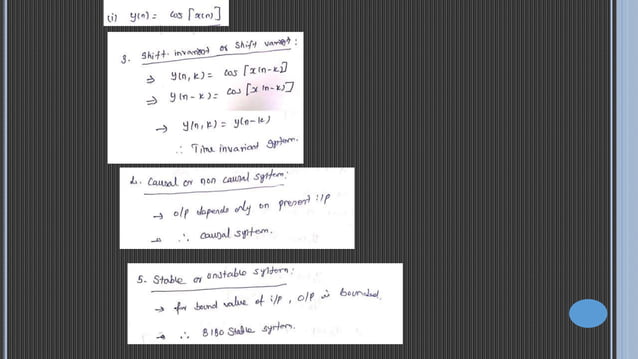 (i) y(n) = cos [x(n)]
3. Shift invariant or shift variant:
⇒ y(n,k) = cos [x(n-k)]
⇒ y(n-k) = cos [x(n-k)]
→ y(n,k) = y(n-k)
∴ Time invariant system.
4. Causal or non causal system:
→ o/p depends only on present i/p
→ ∴ causal system.
5. Stable or unstable system:
→ for bound value of i/p, o/p is bounded.
→ ∴ BIBO stable system.